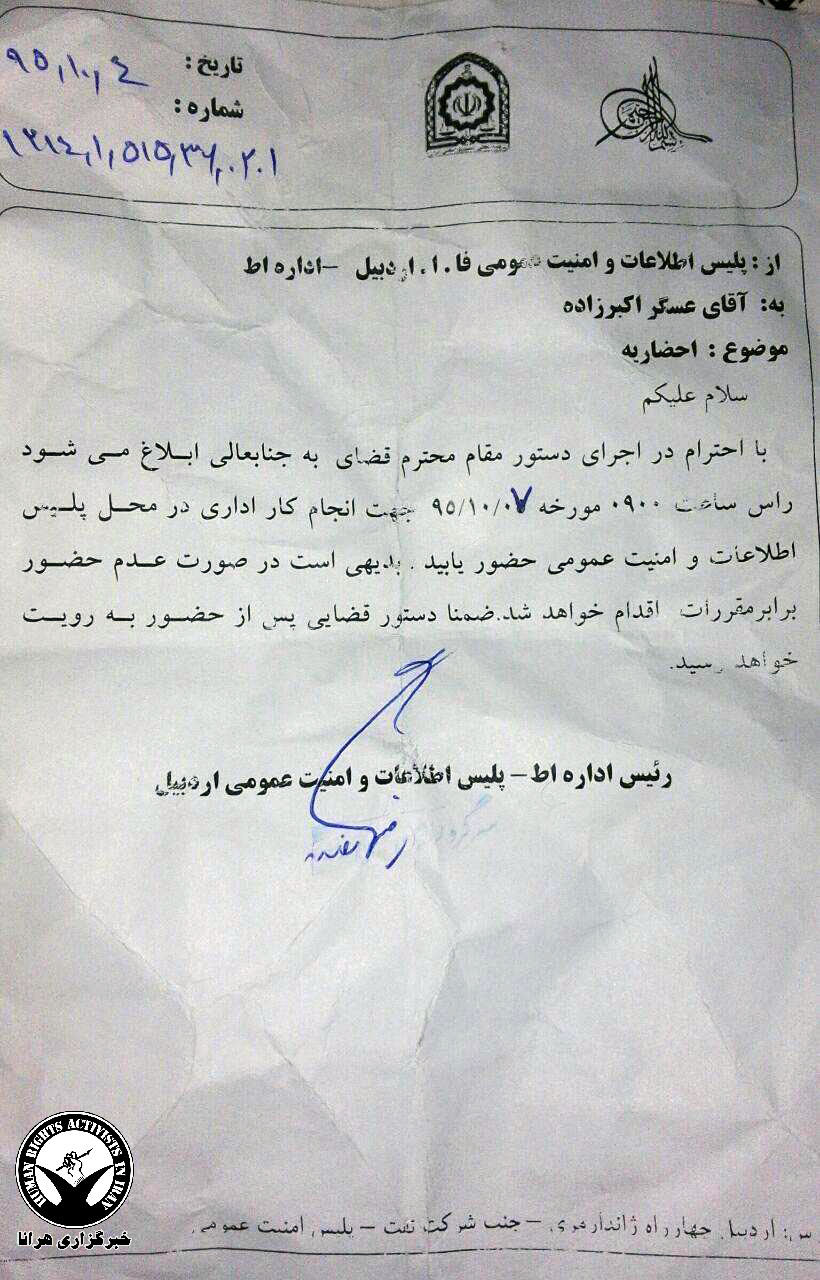 تاریخ : ۹۵٫۱۰٫۴
شماره :
بسم الله الرحمن الرحیم
از : پلیس اطلاعات و امنیت عمومی فا . ا . اردبیل -اداره اط
به: آقای عسگر اکبرزاده
موضوع : احضاریه
سلام علیکم
با احترام در اجرای دستور مقام محترم قضای به جنابعالی ابلاغ می شود
راس ساعت ۰۹۰۰ مورخه ۹۵/۱۰/۰۷ جهت انجام کار اداری در محل پلیس
اطلاعات و امنیت عمومی حضور یابید . بدیهی است در صورت عدم حضور
برابرمقررات اقدام خواهد شد.ضمنا دستور قضایی پس از حضور به رویت
خواهد رسید.
رئیس اداره اط – پلیس اطلاعات و امنیت عمومی اردبیل
HUMAN RIGHTS ACTIVISTS IN IRAN
خبرگزاری هرانا
اردبیل چهارراه ژاندارمری – جنب شرکت نفت – پلیس امنیت عمومی